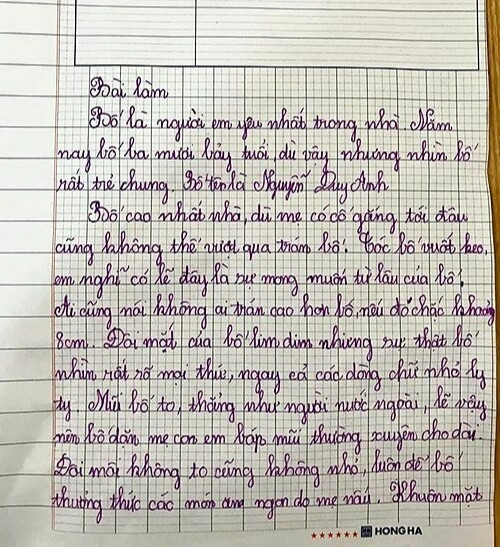 Bài làm
Bố là người em yêu nhất trong nhà. Năm
nay bố ba mươi bảy tuổi, dù vậy nhưng nhìn bố
rất trẻ chung. Bố tên là Nguyễn Duy Anh
Bố cao nhất nhà, dù mẹ có cố gắng tới đâu
cũng không thể vượt qua trán bố. Tóc bố vuốt keo,
em nghĩ có lẽ đây là sự mong muốn từ lâu của bố.
Ai cũng nói không ai trán cao hơn bố, nếu đo chắc khoảng
8cm. Đôi mắt của bố lim dim nhưng sự thật bố
nhìn rất rõ mọi thứ, ngay cả các dòng chữ nhỏ ly
ty. Mũi bố to, thẳng như người nước ngoài, lẽ vậy
nên bố dặn mẹ con em bóp mũi thường xuyên cho dài.
Đôi môi không to cũng không nhỏ, luôn để bố
thưởng thức các món ăn ngon do mẹ nấu. Khuôn mặt
HONG HA